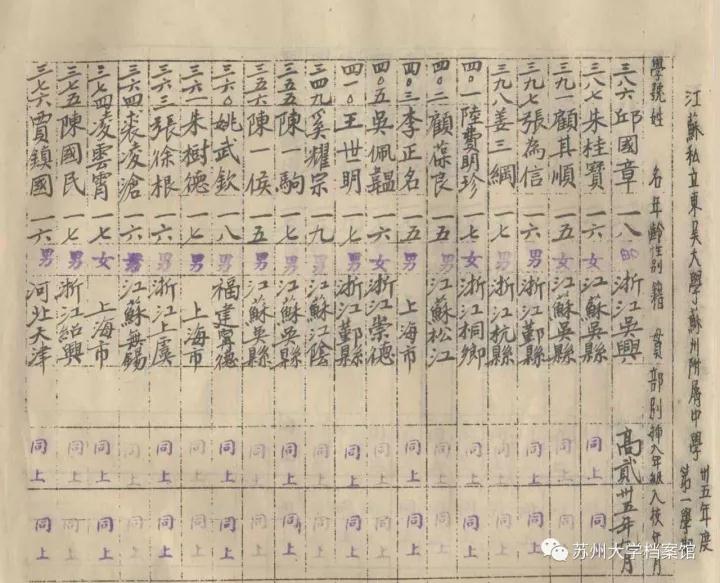 江蘇私立東吳大學蘇州附屬中學 卅五年度第一學期
學號 姓名 年齡 性別 籍貫 部別 插入年級 入校年月
三八六 邱國章 一八 男 浙江吳興 高貳 卅五年 月
三八七 朱桂寶 一六 女 江蘇吳縣 同上 同上
三九一 顧其順 一五 女 江蘇吳縣 同上 同上
三九七 張為信 一六 男 浙江鄞縣 同上 同上
三九八 姜三綱 一七 男 浙江杭縣 同上 同上
四〇一 陸費明珍 一七 女 浙江桐鄉 同上 同上
四〇二 顧葆良 一五 男 江蘇松江 同上 同上
四〇三 李正名 一五 男 上海市 同上 同上
四〇五 吳佩韞 一六 女 浙江崇德 同上 同上
四一〇 王世明 一七 男 浙江鄞縣 同上 同上
三四九 奚耀宗 一九 男 江蘇江陰 同上 同上
三五五 陳一駒 一七 男 江蘇吳縣 同上 同上
三五六 陳一侯 一五 男 江蘇吳縣 同上 同上
三六〇 姚武欽 一八 男 福建寧德 同上 同上
三六一 朱樹德 一七 男 上海市 同上 同上
三六三 張徐根 一六 男 浙江上虞 同上 同上
三六四 裘凌滄 一六 男 江蘇無錫 同上 同上
三七四 凌雲霄 一七 女 上海市 同上 同上
三七五 陳國民 一七 男 浙江紹興 同上 同上
三七六 賈鎮國 一六 男 河北天津 同上 同上
苏州大学档案馆